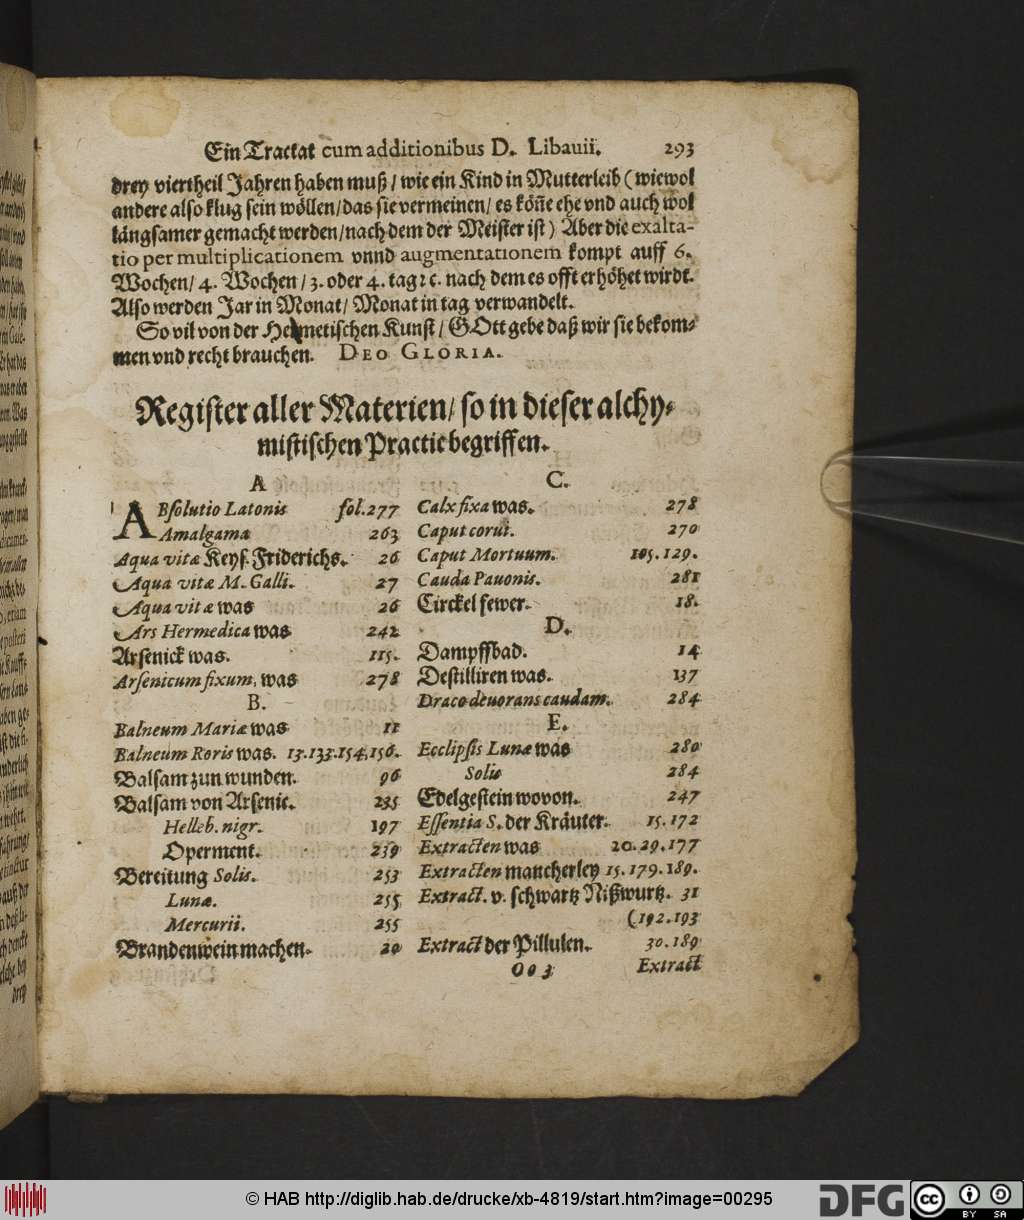 Ein Tractat cum additionibus D. Libauii. 293
drey viertheil Jahren haben muß / wie ein Kind in Mutterleib (wiewol
andere also klug sein wöllen / das sie vermeinen / es köñe ehe vnd auch wol
längsamer gemacht werden / nach dem der Meister ist) Aber die exalta-
tio per multiplicationem vnnd augmentationem kompt auff 6.
Wochen / 4. Wochen / 3. oder 4. tag ꝛc. nach dem es offt erhöhet wirdt.
Also werden Jar in Monat / Monat in tag verwandelt.
So vil von der Hermetischen Kunst / GOtt gebe daß wir sie bekom-
men vnd recht brauchen. DEO GLORIA.
Register aller Materien / so in dieser alchy-
mistischen Practic begriffen.
A
ABsolutio Latonis fol. 277
Amalgama 263
Aqua vitæ Keys. Friderichs. 26
Aqua vitæ M. Galli. 27
Aqua vitæ was 26
Ars Hermedica was 242
Arsenick was. 115.
Arsenicum fixum, was 278
B.
Balneum Mariæ was 11
Balneum Roris was. 13.133.154,156.
Balsam zun wunden. 96
Balsam von Arsenic. 235
Helleb. nigr. 197
Operment. 239
Bereitung Solis. 253
Lunæ. 255
Mercurii. 255
Brandenwein machen. 20
C.
Calx fixa was. 278
Caput corui. 270
Caput Mortuum. 105.129.
Cauda Pauonis. 281
Circkel fewer. 18.
D.
Dampffbad. 14
Destilliren was. 137
Draco deuorans caudam. 284
E.
Ecclipsis Lunæ was 280
Solis 284
Edelgestein wovon. 247
Essentia S. der Kräuter. 15.172
Extracten was 20.29.177
Extracten mancherley 15.179.189.
Extract. v. schwartz Nißwurtz. 31
(192.193
Extract der Pillulen. 30.189
Oo 3 Extract
© HAB http://diglib.hab.de/drucke/xb-4819/start.htm?image=00295
DFG
cc BY SA